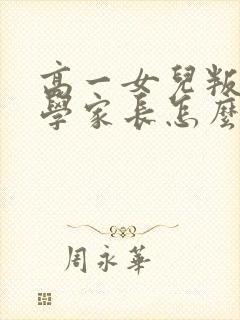 高一女兒叛
學家長怎麼
周永華